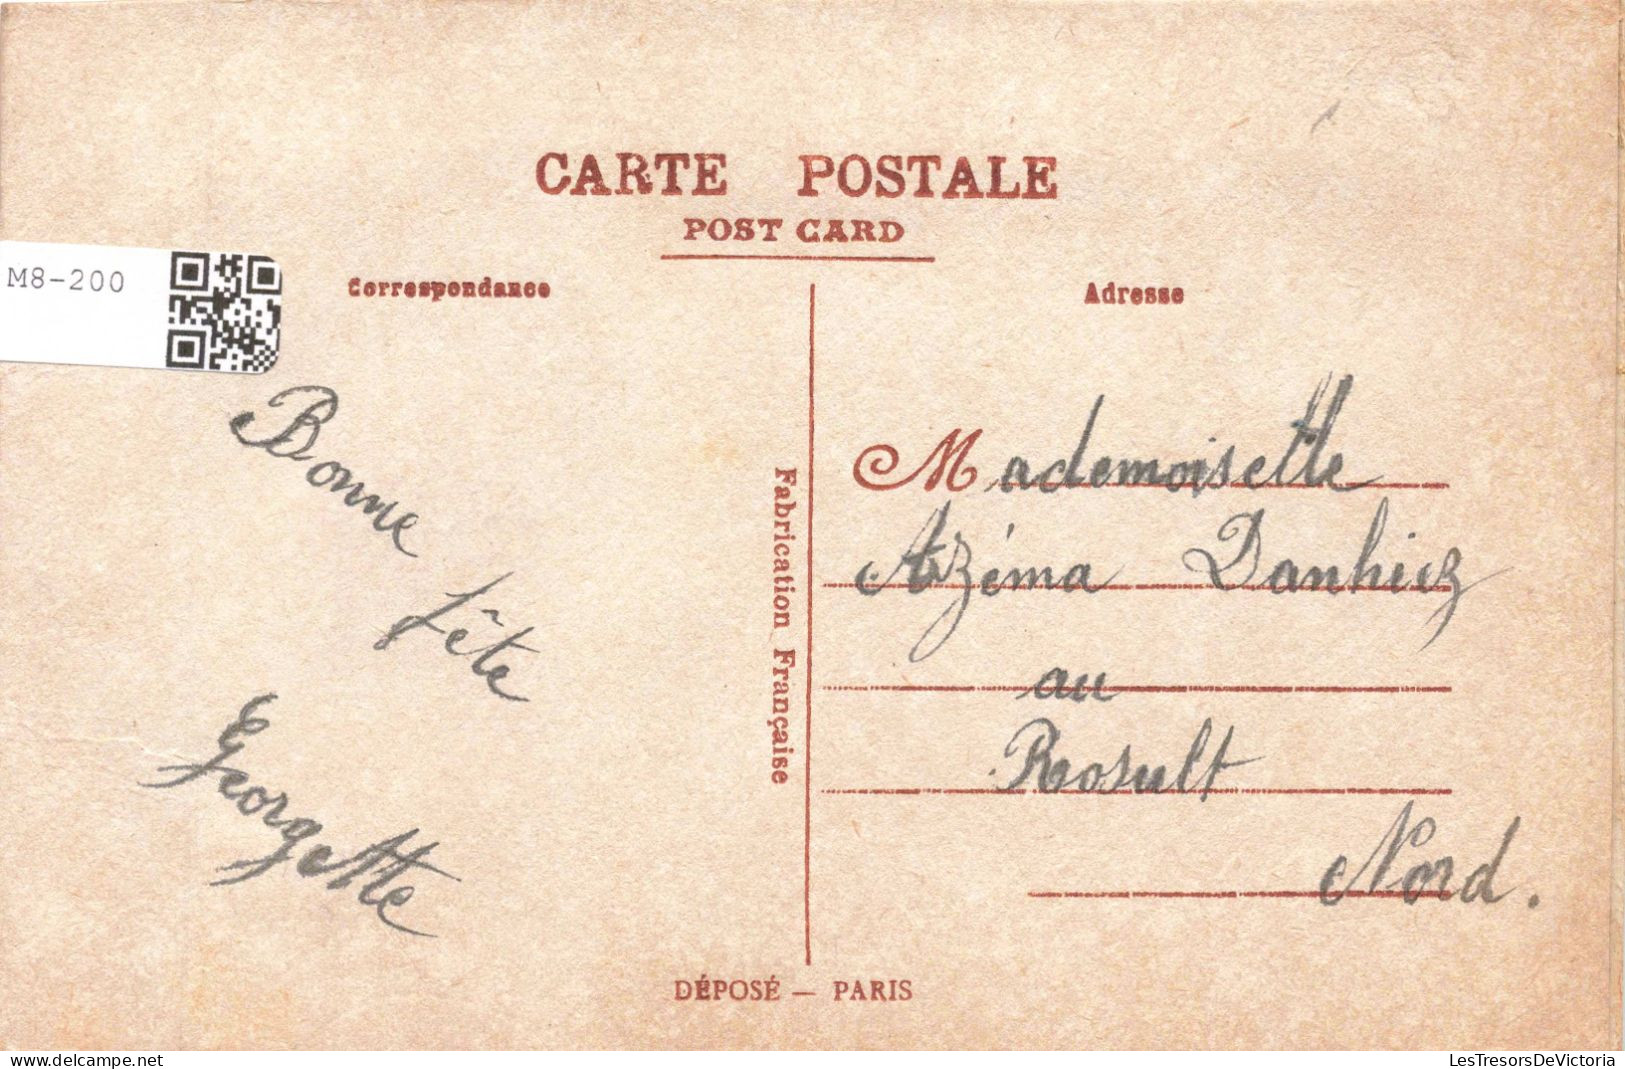 CARTE POSTALE
POST CARD
M8-200
Correspondance
Adresse
Bonne
fête
Georgette
Fabrication Française
Mademoiselle
Azéma Danhiez
au
Rosult
Nord.
DÉPOSÉ — PARIS
delcampe.net
LesTresorsDeVictoria